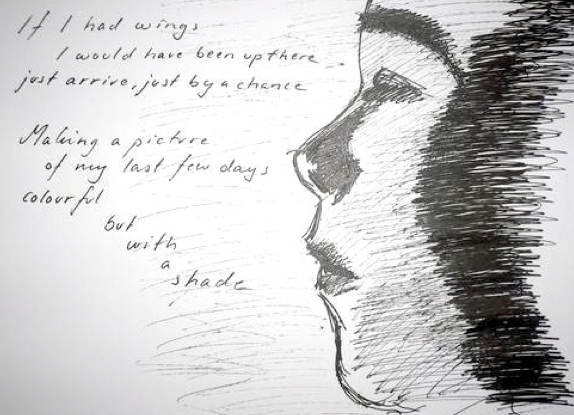 If I had wings
I would have been up there
just arrive, just by a chance
Making a picture
of my last few days
colourful
but
with
a
shade